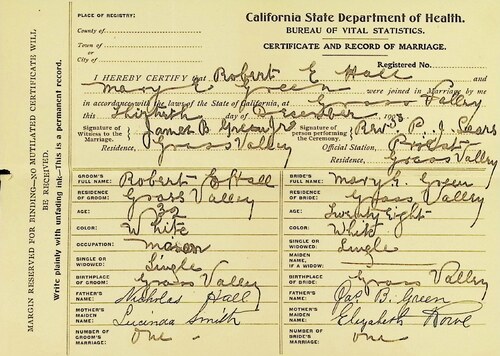 PLACE OF REGISTRY:
County of
Town of
or
City of
California State Department of Health.
BUREAU OF VITAL STATISTICS.
CERTIFICATE AND RECORD OF MARRIAGE.
Registered No.
I HEREBY CERTIFY that Robert E Hall and
Mary E. Green were joined in Marriage by me
in accordance with the laws of the State of California, at Grass Valley
this thirtieth day of December 1908
Signature of Witness to the Marriage. James B Green Jr
Residence, Grass Valley
Signature of person performing the Ceremony. Rev. P. J. Sears
Official Station,
Residence, Grass Valley
GROOM'S FULL NAME: Robert E Hall
RESIDENCE OF GROOM: Grass Valley
AGE: 32
COLOR: White
OCCUPATION: Mason
SINGLE OR WIDOWED: Single
BIRTHPLACE OF GROOM: Grass Valley
FATHER'S NAME: Nicholas Hall
MOTHER'S MAIDEN NAME: Lucinda Smith
NUMBER OF GROOM'S MARRIAGE: One -
BRIDE'S FULL NAME: Mary E. Green
RESIDENCE OF BRIDE: Grass Valley
AGE: Twenty Eight
COLOR: White
SINGLE OR WIDOWED: Single
MAIDEN NAME, IF A WIDOW:
BIRTHPLACE OF BRIDE: Grass Valley
FATHER'S NAME: Jas B. Green
MOTHER'S MAIDEN NAME: Elizabeth Rowe
NUMBER OF BRIDE'S MARRIAGE: One
MARGIN RESERVED FOR BINDING—NO MUTILATED CERTIFICATE WILL
BE RECEIVED.
Write plainly with unfading ink—This is a permanent record.